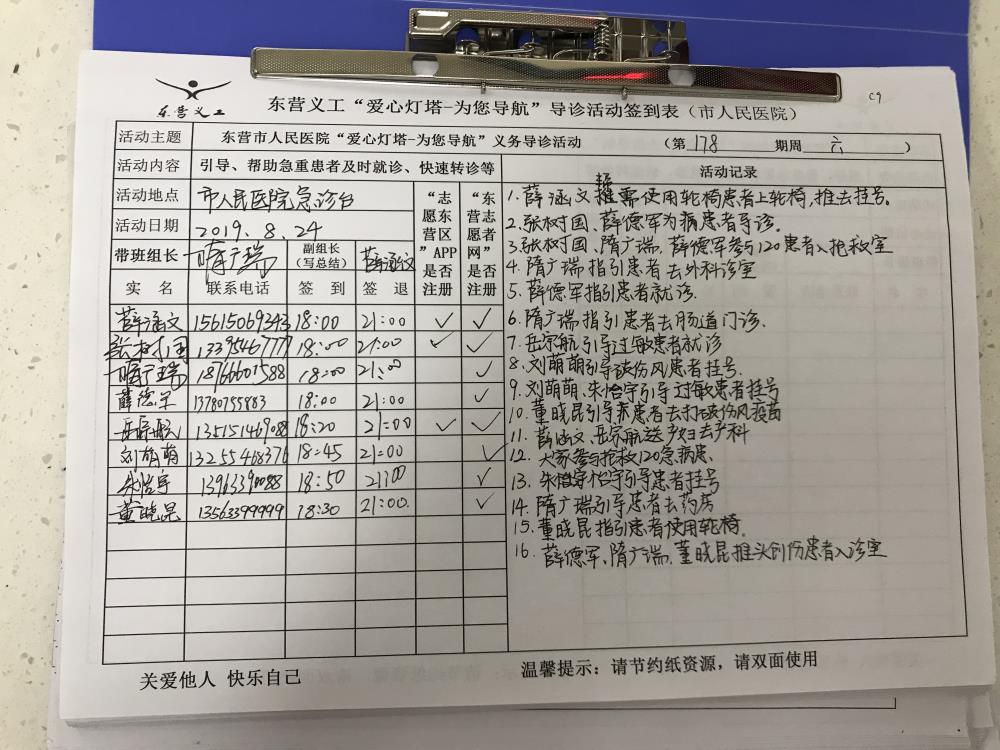 C9
东营义工
东营义工“爱心灯塔-为您导航”导诊活动签到表（市人民医院）
活动主题 东营市人民医院“爱心灯塔-为您导航”义务导诊活动 （第 178 期周 六 ）
活动内容 引导、帮助急重患者及时就诊、快速转诊等
活动地点 市人民医院急诊台
活动日期 2019.8.24
带班组长 隋广瑞 副组长（写总结） 薛涵文
“志愿东营区”APP是否注册
“东营志愿者网”是否注册
实 名 联系电话 签 到 签 退
薛涵文 15615069343 18:00 21:00 ✓ ✓
张树国 13395467777 18:00 21:00 ✓ ✓
隋广瑞 18766601588 18:00 21:00 ✓
薛德军 13780755883 18:00 21:00 ✓
岳宗航 135151469088 18:20 21:00 ✓ ✓
刘萌萌 13255468376 18:45 21:00 ✓
朱怡宇 13963390088 18:50 21:00 ✓
董晓昆 13563399999 18:30 21:00. ✓
活动记录
1. 薛涵文 需使用轮椅患者上轮椅，推去挂号。
2. 张树国、薛德军为病患者导诊。
3. 张树国、隋广瑞、薛德军参与120患者入抢救室
4. 隋广瑞指引患者去外科诊室
5. 薛德军指引患者就诊.
6. 隋广瑞指引患者去肠道门诊.
7. 岳宗航引导过敏患者就诊
8. 刘萌萌引导破伤风患者挂号.
9. 刘萌萌、朱怡宇引导过敏患者挂号
10. 董晓昆引导病患者去打破伤风疫苗
11. 薛涵文、岳宗航送产妇去产科
12. 大家参与抢救120急病患.
13. 朱怡宇引导患者挂号
14. 隋广瑞引导患者去药房
15. 董晓昆指引患者使用轮椅.
16. 薛德军、隋广瑞、董晓昆推头创伤患者入诊室
关爱他人 快乐自己
温馨提示：请节约纸资源，请双面使用